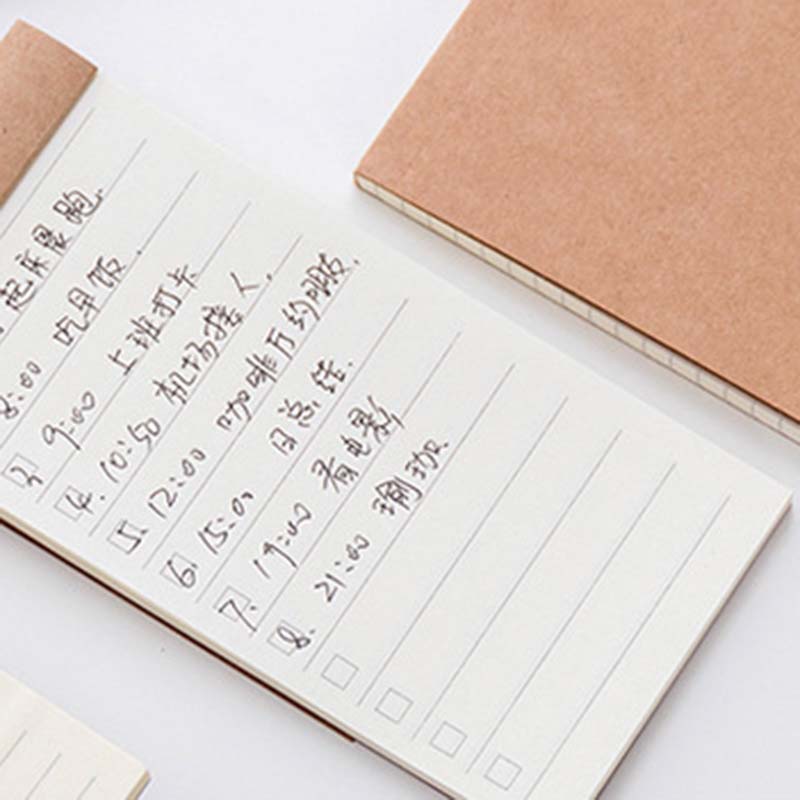 起床晨跑.
8:00 吃早饭.
3 9:00 上班打卡
4. 10:50 机场接人.
5. 12:00 咖啡厅约朋友.
6. 15:00 日总结.
7. 19:00 看电影
8. 21:00 瑜珈.